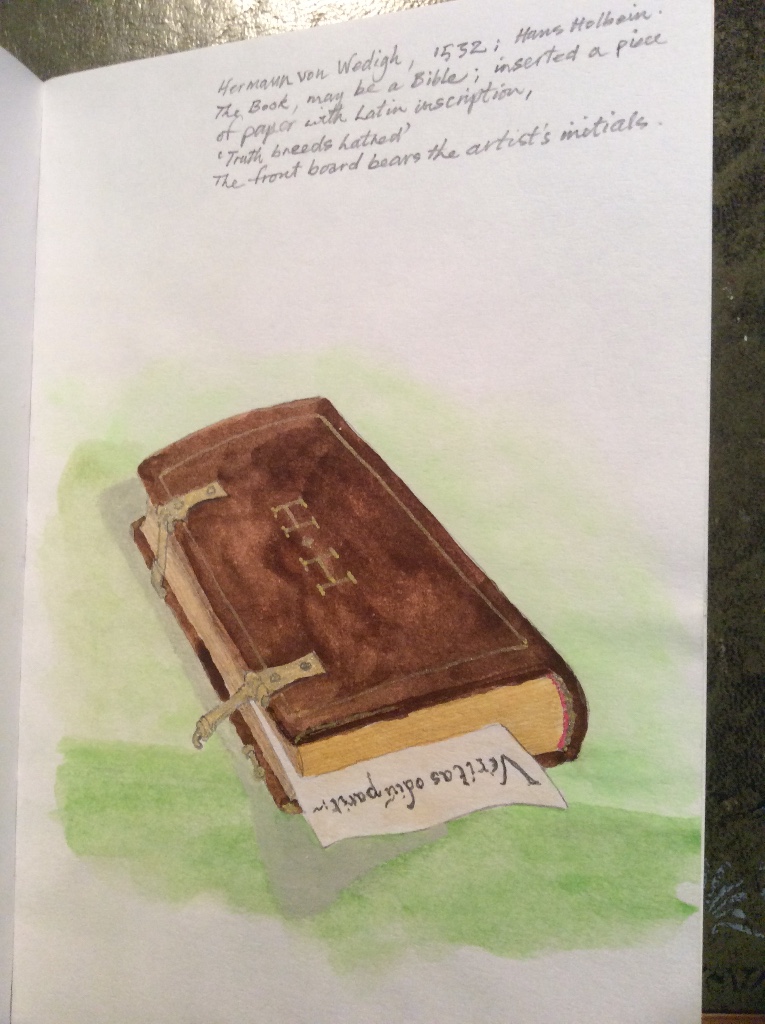 Hermann von Wedigh, 1532; Hans Holbein.
The Book, may be a Bible; inserted a piece
of paper with Latin inscription,
'Truth breeds hatred'
The front board bears the artist's initials.
H·H
Veritas odiũ parit:~